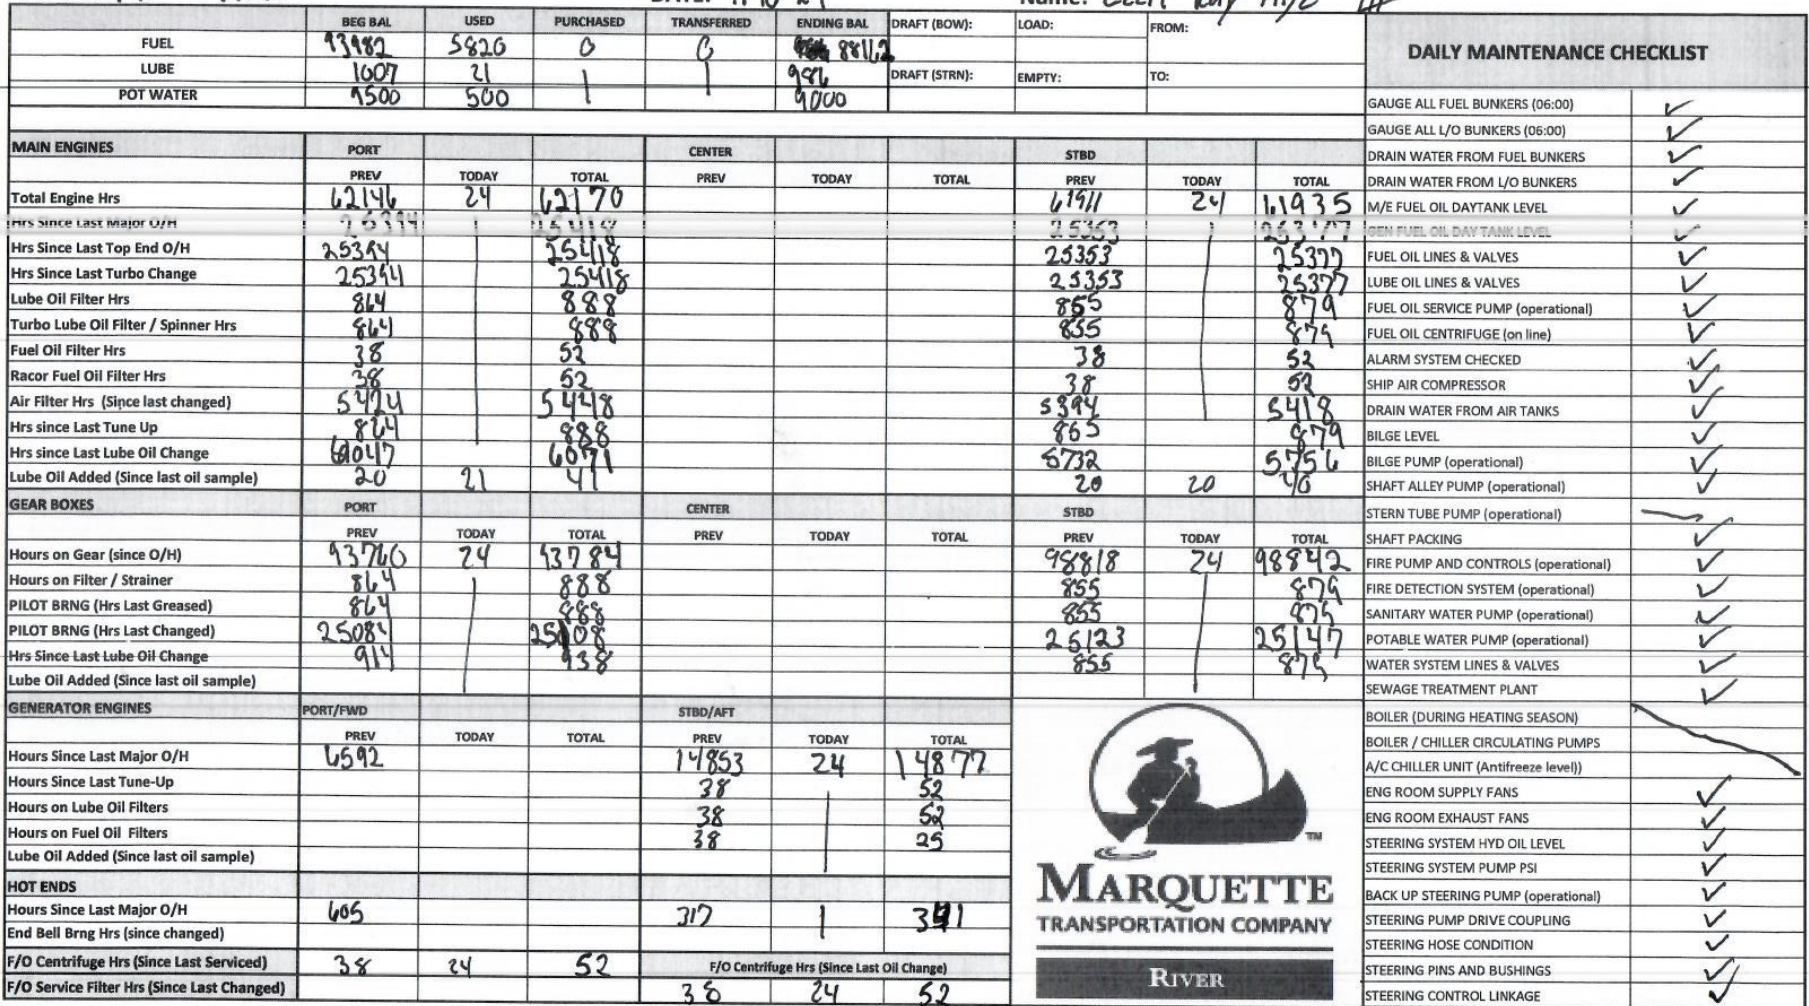 DATE: Name:
BEG BAL USED PURCHASED TRANSFERRED ENDING BAL DRAFT (BOW): LOAD: FROM:
FUEL 93982 5820 0 0 88162
LUBE 1007 21 | | 986 DRAFT (STRN): EMPTY: TO:
POT WATER 9500 500 9000
DAILY MAINTENANCE CHECKLIST
MAIN ENGINES PORT CENTER STBD
PREV TODAY TOTAL PREV TODAY TOTAL PREV TODAY TOTAL
Total Engine Hrs 62146 24 62170 61911 24 61935
Hrs Since Last Major O/H 25394 25418 25353 25377
Hrs Since Last Top End O/H 25394 25418 25353 25377
Hrs Since Last Turbo Change 25394 25418 25353 25377
Lube Oil Filter Hrs 864 888 855 879
Turbo Lube Oil Filter / Spinner Hrs 864 888 855 879
Fuel Oil Filter Hrs 38 52 38 52
Racor Fuel Oil Filter Hrs 38 52 38 52
Air Filter Hrs (Since last changed) 5424 5448 5394 5418
Hrs since Last Tune Up 864 888 865 879
Hrs since Last Lube Oil Change 6047 6071 5732 5756
Lube Oil Added (Since last oil sample) 20 21 41 20 20 40
GEAR BOXES PORT CENTER STBD
PREV TODAY TOTAL PREV TODAY TOTAL PREV TODAY TOTAL
Hours on Gear (since O/H) 93760 24 93784 98818 24 98842
Hours on Filter / Strainer 864 888 855 879
PILOT BRNG (Hrs Last Greased) 864 888 855 879
PILOT BRNG (Hrs Last Changed) 25084 25108 25123 25147
Hrs Since Last Lube Oil Change 914 938 855 879
Lube Oil Added (Since last oil sample)
GENERATOR ENGINES PORT/FWD STBD/AFT
PREV TODAY TOTAL PREV TODAY TOTAL
Hours Since Last Major O/H 6592 14853 24 14877
Hours Since Last Tune-Up 38 52
Hours on Lube Oil Filters 38 52
Hours on Fuel Oil Filters 38 25
Lube Oil Added (Since last oil sample)
HOT ENDS
Hours Since Last Major O/H 605 317 341
End Bell Brng Hrs (since changed)
F/O Centrifuge Hrs (Since Last Serviced) 38 24 52 F/O Centrifuge Hrs (Since Last Oil Change)
F/O Service Filter Hrs (Since Last Changed) 38 24 52
MARQUETTE
TRANSPORTATION COMPANY
RIVER
TM
GAUGE ALL FUEL BUNKERS (06:00) ✓
GAUGE ALL L/O BUNKERS (06:00) ✓
DRAIN WATER FROM FUEL BUNKERS ✓
DRAIN WATER FROM L/O BUNKERS ✓
M/E FUEL OIL DAYTANK LEVEL ✓
GEN FUEL OIL DAY TANK LEVEL ✓
FUEL OIL LINES & VALVES ✓
LUBE OIL LINES & VALVES ✓
FUEL OIL SERVICE PUMP (operational) ✓
FUEL OIL CENTRIFUGE (on line) ✓
ALARM SYSTEM CHECKED ✓
SHIP AIR COMPRESSOR ✓
DRAIN WATER FROM AIR TANKS ✓
BILGE LEVEL ✓
BILGE PUMP (operational) ✓
SHAFT ALLEY PUMP (operational) ✓
STERN TUBE PUMP (operational)
SHAFT PACKING ✓
FIRE PUMP AND CONTROLS (operational) ✓
FIRE DETECTION SYSTEM (operational) ✓
SANITARY WATER PUMP (operational) ✓
POTABLE WATER PUMP (operational) ✓
WATER SYSTEM LINES & VALVES ✓
SEWAGE TREATMENT PLANT ✓
BOILER (DURING HEATING SEASON)
BOILER / CHILLER CIRCULATING PUMPS
A/C CHILLER UNIT (Antifreeze level))
ENG ROOM SUPPLY FANS ✓
ENG ROOM EXHAUST FANS ✓
STEERING SYSTEM HYD OIL LEVEL ✓
STEERING SYSTEM PUMP PSI ✓
BACK UP STEERING PUMP (operational) ✓
STEERING PUMP DRIVE COUPLING ✓
STEERING HOSE CONDITION ✓
STEERING PINS AND BUSHINGS ✓
STEERING CONTROL LINKAGE ✓